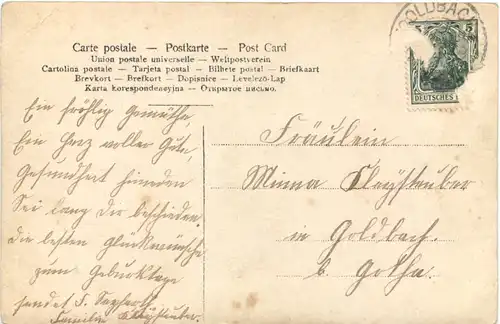 GOLDBACH
5
DEUTSCHES
Carte postale — Postkarte — Post Card
Union postale universelle — Weltpostverein
Cartolina postale — Tarjeta postal — Bilhete postal — Briefkaart
Brevkort — Brefkort — Dopisnice — Levelező-Lap
Karta korespondencyjna — Открытое письмо.
Ein fröhlig Gemüthe,
Ein Herz voller Güte,
Gesundheit hinieden
Sei lang Dir beschieden.
Die besten Glückwünsche
zum Geburtstage
sendet F.
Familie
Fräulein
Minna
in Goldbach.
b Gotha.